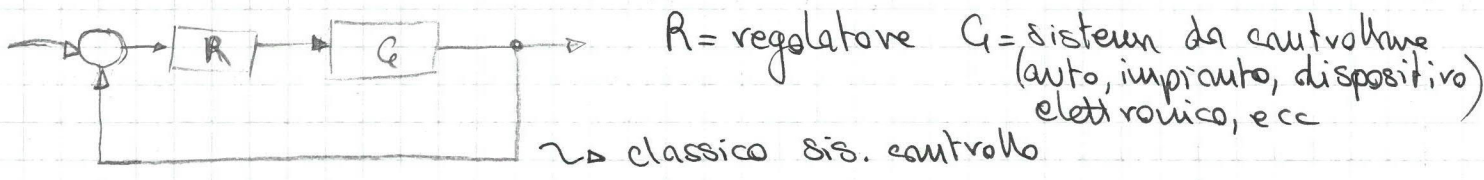 R G R = regolatore G = sistema da controllare
(auto, impianto, dispositivo)
elettronico, ecc
classico sis. controllo